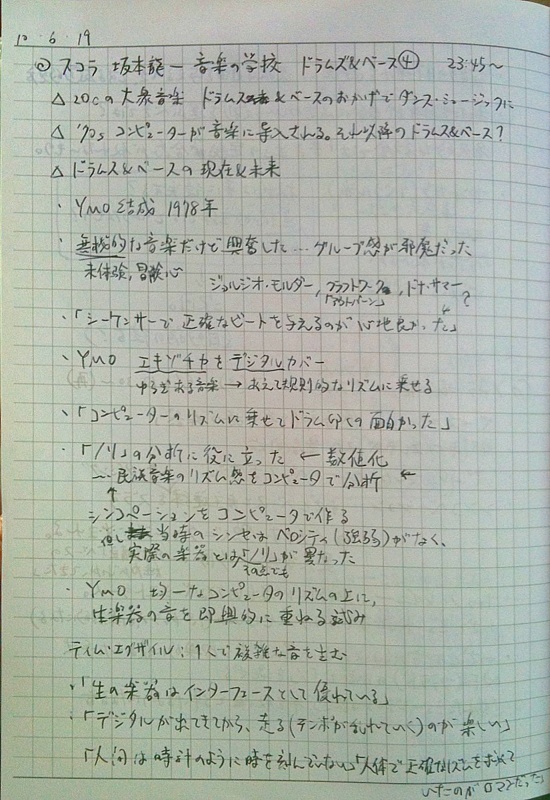 10・6・19
◎スコラ 坂本龍一 音楽の学校 ドラムズ&ベース④ 23:45~
△ 20cの大衆音楽 ドラムス&ベースのおかげでダンス・ミュージックに
△ '70s コンピューターが音楽に導入される。それ以降のドラムス&ベース?
△ ドラムス&ベースの現在&未来
・YMO結成 1978年
・無機的な音楽だけど興奮した…グルーブ感が邪魔だった
未体験,冒険心
ジョルジオ・モルダー, クラフトワーク, ドナ・サマー
「アウトバーン」 ?
・「シーケンサーで正確なビートを与えるのが心地良かった」
・YMO エキゾチカをデジタルカバー
ゆらぎある音楽 → あえて規則的なリズムに乗せる
・「コンピューターのリズムに乗せてドラム叩くの面白かった」
・「ノリ」の分析に役に立った ← 数値化
… 民族音楽のリズム感をコンピュータで分析 ←
↑
シンコペーションをコンピュータで作る
但し 当時のシンセはベロシティ(強弱)がなく、
実際の楽器とは「ノリ」が異なった
その点でも
・YMO 均一なコンピュータのリズムの上に,
生楽器の音を即興的に重ねる試み
ティム・エグザイル: 1人で複雑な音を生む
・「生の楽器はインターフェースとして優れている」
・「デジタルが出てきてから、走る(テンポが乱れていく)のが楽しい」
「人間は時計のように時を刻んでいない」「人体で正確なリズムを求めて
いたのがロマンだった」